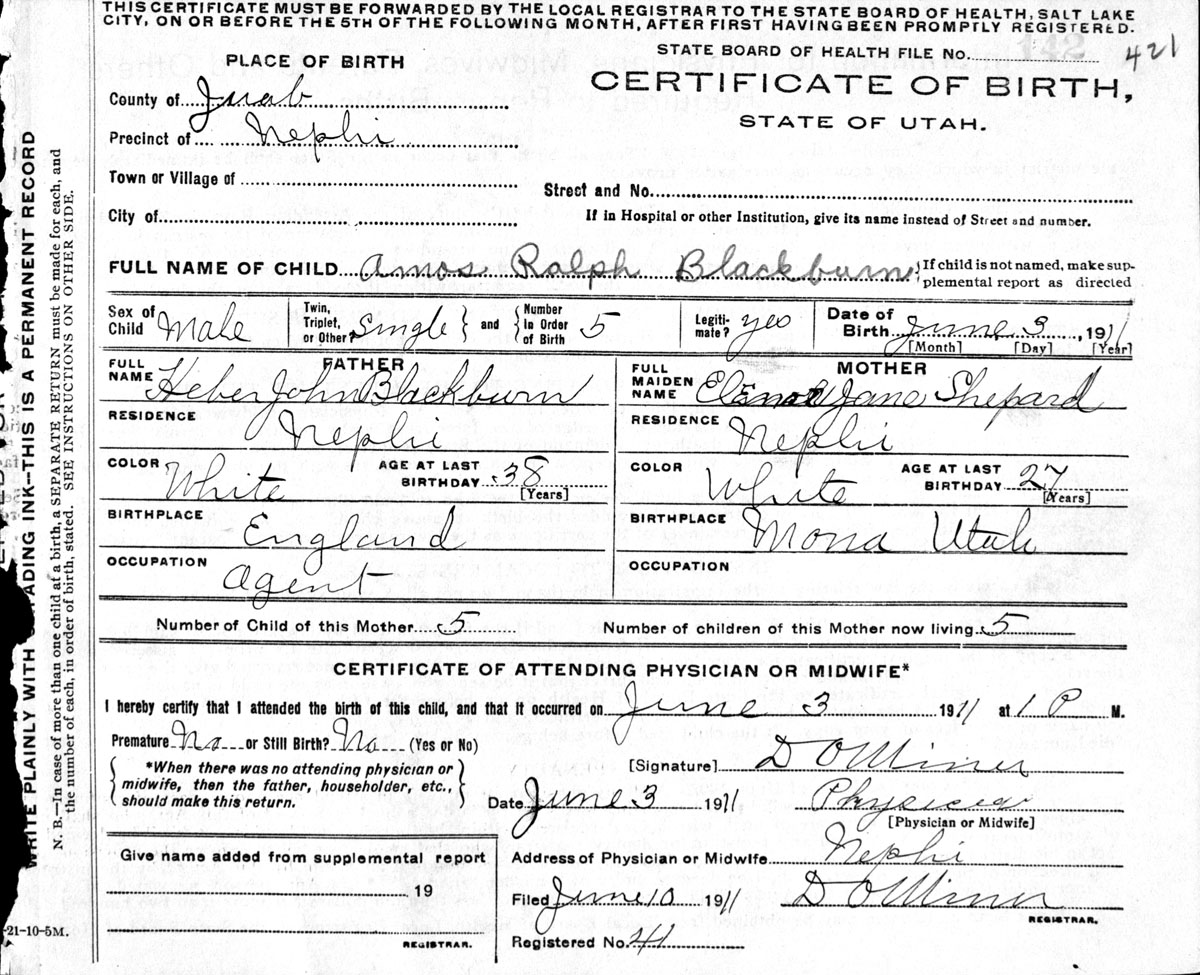 THIS CERTIFICATE MUST BE FORWARDED BY THE LOCAL REGISTRAR TO THE STATE BOARD OF HEALTH, SALT LAKE
CITY, ON OR BEFORE THE 5TH OF THE FOLLOWING MONTH, AFTER FIRST HAVING BEEN PROMPTLY REGISTERED.
STATE BOARD OF HEALTH FILE No. 142 421
PLACE OF BIRTH
CERTIFICATE OF BIRTH,
STATE OF UTAH.
County of Juab
Precinct of Nephi
Town or Village of
Street and No.
City of
If in Hospital or other Institution, give its name instead of Street and number.
FULL NAME OF CHILD Amos Ralph Blackburn } If child is not named, make sup-
plemental report as directed
Sex of Child Male
Twin, Triplet, or Other? Single } and { Number In Order of Birth 5
Legiti-mate? yes
Date of Birth June 3, 1911
[Month] [Day] [Year]
FATHER
FULL NAME Heber John Blackburn
MOTHER
FULL MAIDEN NAME Jane Shepard
RESIDENCE Nephi
RESIDENCE Nephi
COLOR White AGE AT LAST BIRTHDAY 38 [Years]
COLOR White AGE AT LAST BIRTHDAY 27 [Years]
BIRTHPLACE England
BIRTHPLACE Mona Utah
OCCUPATION Agent
OCCUPATION
Number of Child of this Mother 5
Number of children of this Mother now living 5
CERTIFICATE OF ATTENDING PHYSICIAN OR MIDWIFE*
I hereby certify that I attended the birth of this child, and that it occurred on June 3 1911 at 1 P M.
Premature No or Still Birth? No (Yes or No)
*When there was no attending physician or
midwife, then the father, householder, etc.,
should make this return.
[Signature] D O Miner
Date June 3 1911 Physician
[Physician or Midwife]
Give name added from supplemental report
19
REGISTRAR.
Address of Physician or Midwife Nephi
Filed June 10 1911 D O Miner
REGISTRAR.
Registered No. 41
-21-10-5M.
WRITE PLAINLY WITH UNFADING INK—THIS IS A PERMANENT RECORD
N. B.—In case of more than one child at a birth, a SEPARATE RETURN must be made for each, and
the number of each, in order of birth, stated. SEE INSTRUCTIONS ON OTHER SIDE.